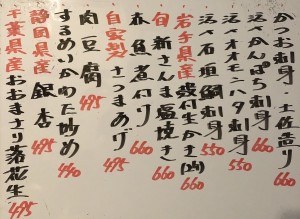 かつお刺身 土佐造り 660
活〆かんぱち刺身 660
活〆オオモンハタ刺身 550
活〆石垣鯛刺身 550
岩手県産殻付生かき 660
旬 新さんま塩焼き 660
赤魚煮付け 660
自家製さつまあげ 495
肉豆腐 495
するめいかわた炒め 440
静岡県産 銀杏 495
千葉県産おおまさり落花生 495